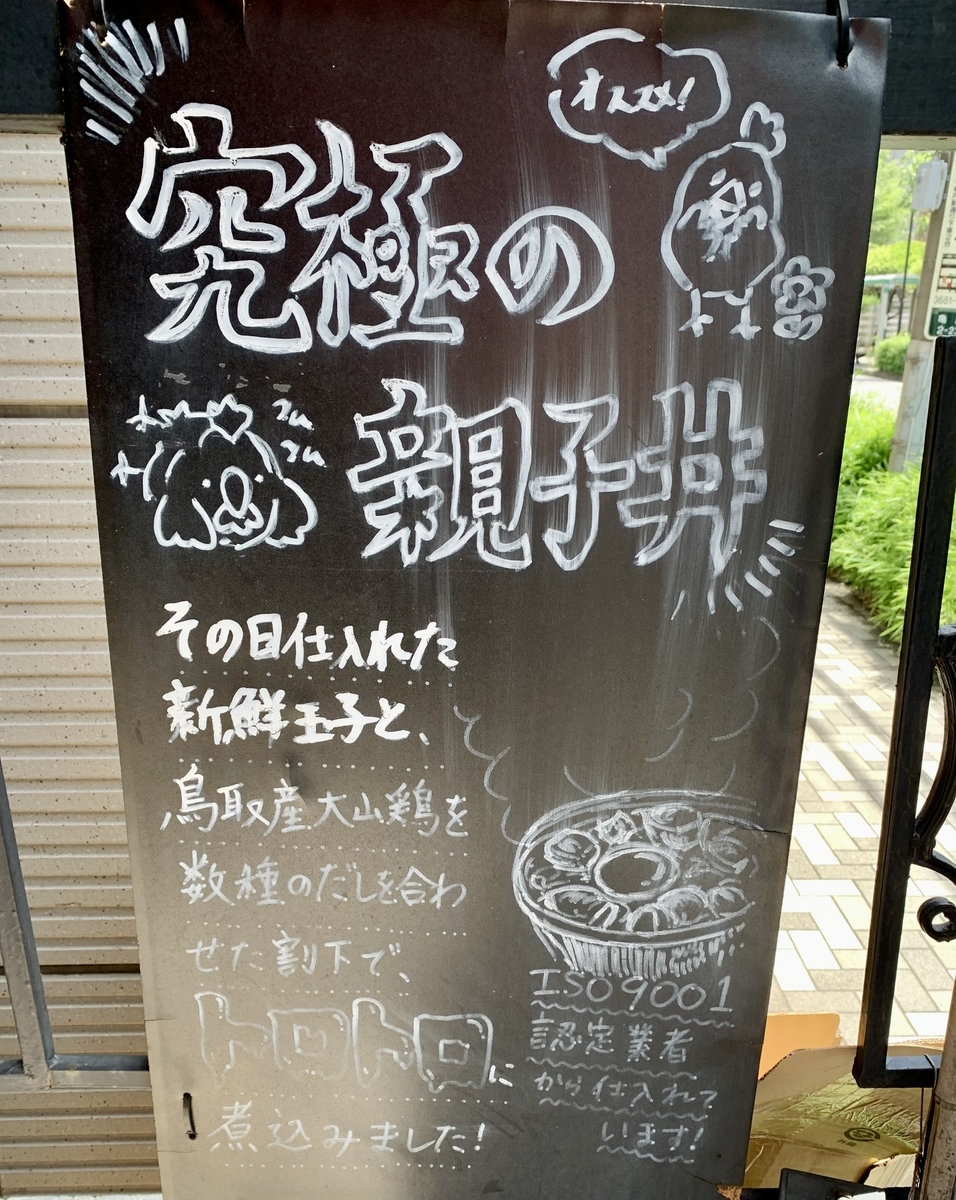 オススメ!
究極の
親子丼
その日仕入れた
新鮮玉子と、
鳥取産大山鶏を
数種のだしを合わ
せた割下で、
トロトロに
煮込みました!
ISO9001
認定業者
から仕入れて
います!
3681-